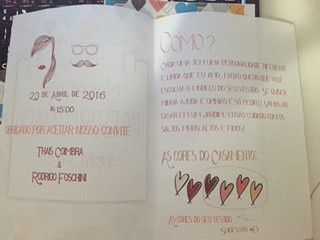 23 de Abril de 2016
às 15:00
Obrigado por aceitar nosso convite
Thais Coimbra
&
Rodrigo Foschini
Como?
Cada uma tem uma personalidade diferente
e linda que eu amo, então quero que você
escolha o modelo do seu vestido. Se quiser
minha ajuda e opinião é só pedir! Vamos no
casar em um jardim, então cuidado com os
saltos muito altos e finos!
As cores do Casamento:
As cores do seu vestido
Sugestão =D